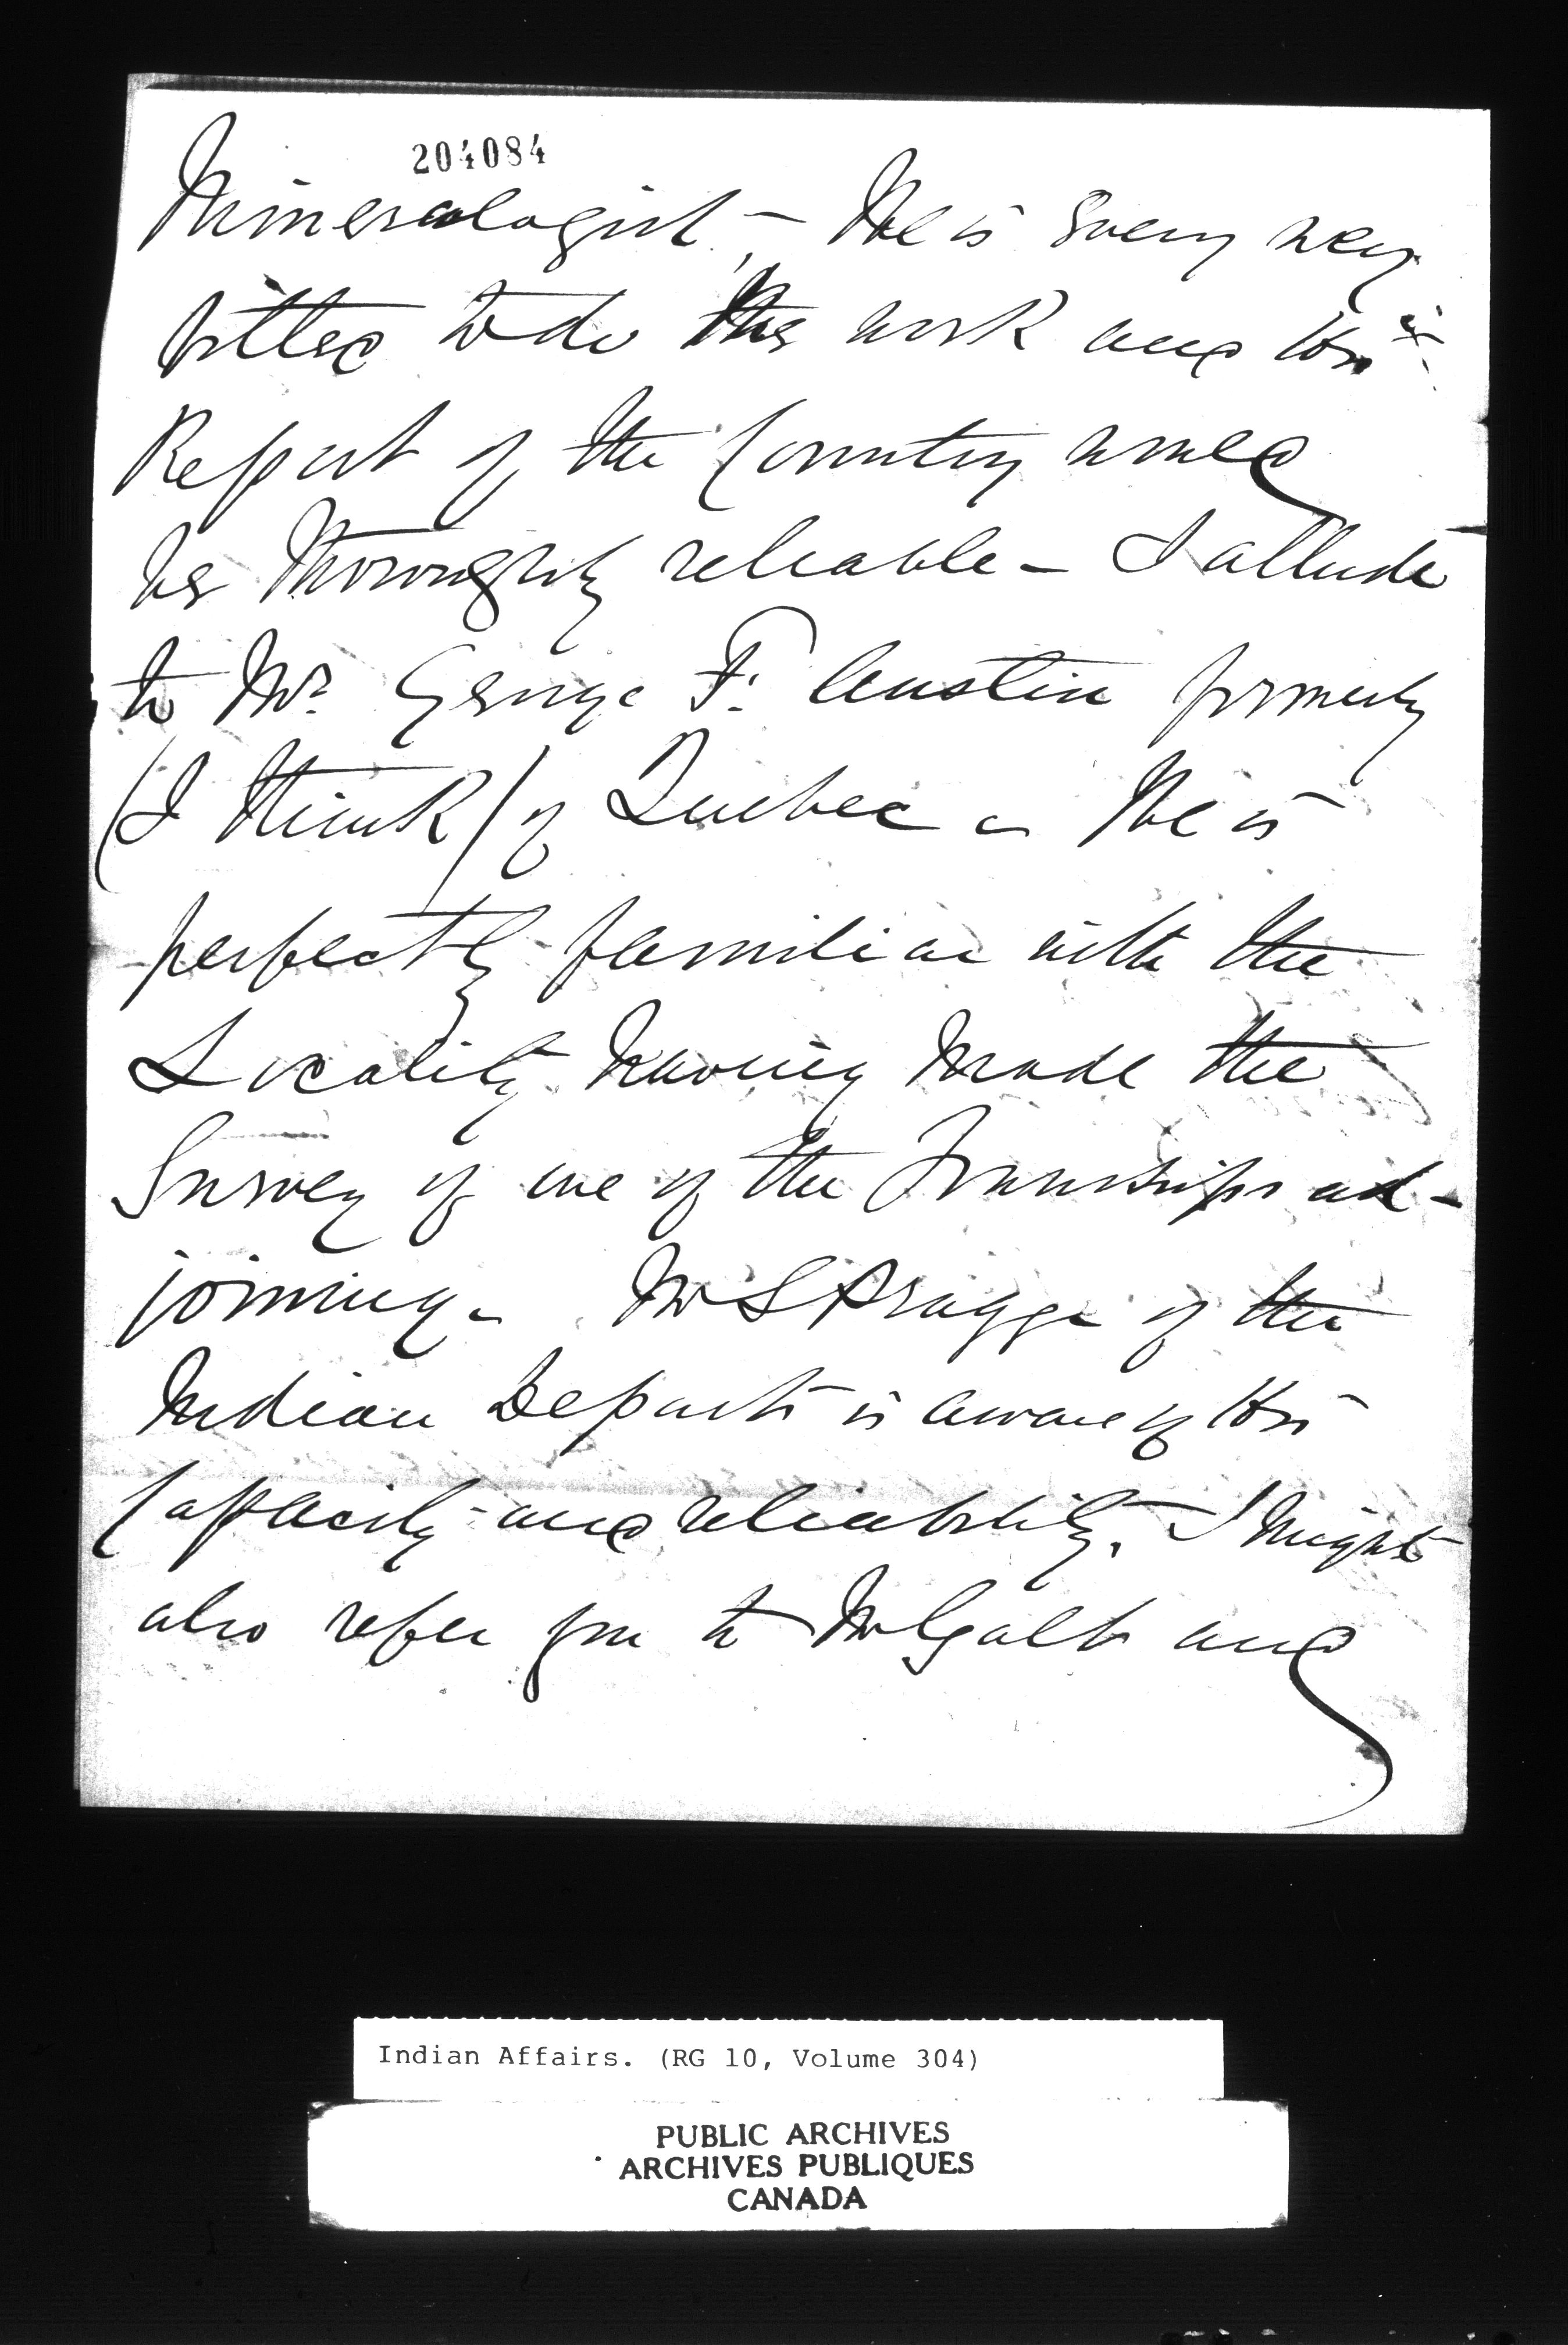 204084
Mineralogist - He is every way
fitted to do this work and His
Report of the Country would
be thoroughly reliable - I allude
to Mr. George F. Austin formerly
(I think) of Quebec - He is
perfectly familiar with the
Locality having made the
Survey of one of the Townships ad-
joining - Mr Spragge of the
Indian Departt is aware of His
Capacity and reliability. I might
also refer you to Mr Galt and
Indian Affairs. (RG 10, Volume 304)
PUBLIC ARCHIVES
ARCHIVES PUBLIQUES
CANADA